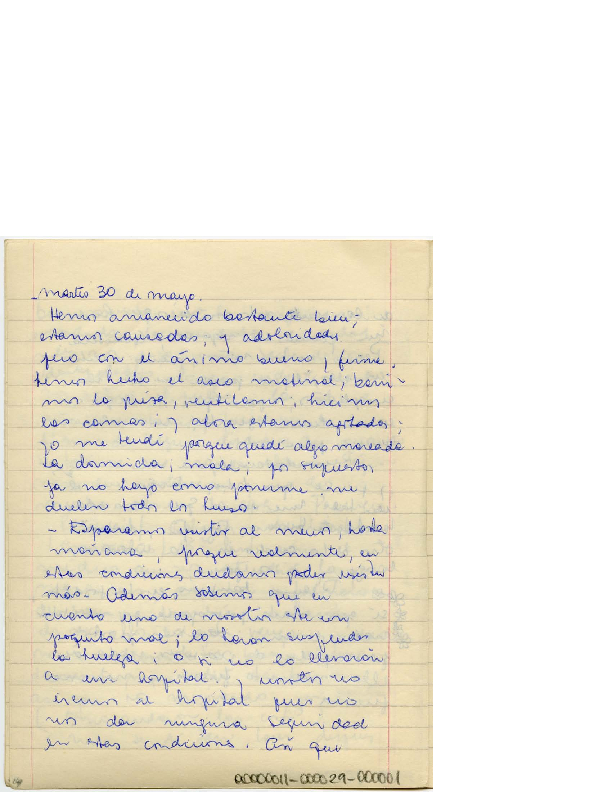 - martes 30 de mayo.
Hemos amanecido bastante bien;
estamos cansadas, y adoloridas
pero con el ánimo bueno, firme.
hemos hecho el aseo matinal, barri-
mos la pieza, ventilamos, hicimos
las camas; y ahora estamos agotadas;
yo me tendí porque quedé algo mareada.
La dormida, mala; por supuesto,
ya no hayo como ponerme, me
duelen todos los huesos
- Esperamos resistir al menos, hasta
mañana, porque realmente, en
estas condiciones dudamos poder resistir
más- Además sabemos que en
cuanto uno de nosotros esté un
poquito mal; lo harán suspender
la huelga; o si no lo llevarán
a un hospital, nosotros no
iremos al hospital pues no
nos dan ninguna seguridad
en estas condiciones. Así que
00000011-000029-000001